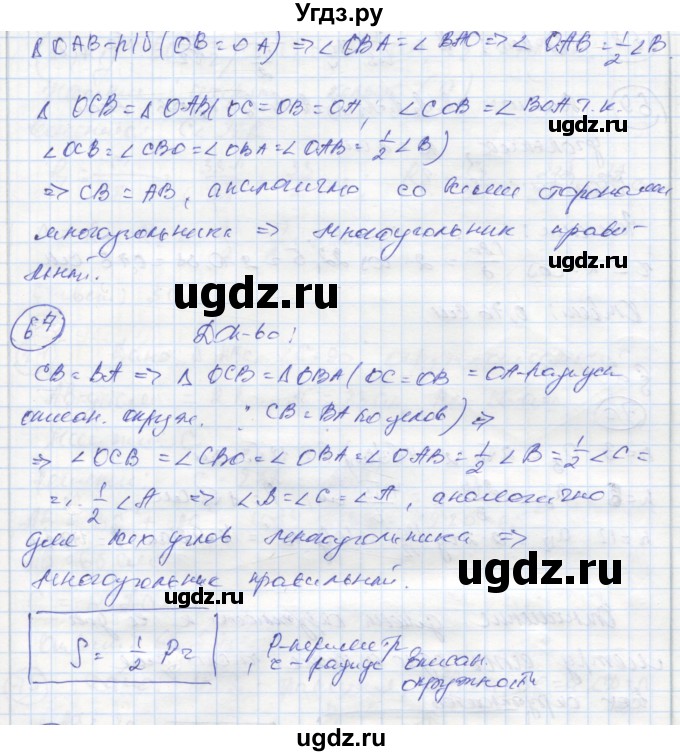 Угдз.ру
Δ OAB - р/б (OB = OA) => ∠OBA = ∠BAO => ∠OAB = 1/2 ∠B.
Δ OCB = Δ OAB (OC = OB = OA, ∠COB = ∠BOA т.к.
ugdz.ru
∠OCB = ∠CBO = ∠OBA = ∠OAB = 1/2 ∠B)
=> CB = AB, аналогично со всеми сторонами
многоугольника => многоугольник прави-
льный.
ugdz.ru
67 Док-во:
CB = BA => Δ OCB = Δ OBA (OC = OB = OA - радиусы
описан. окруж. CB = BA по услов) =>
=> ∠OCB = ∠CBO = ∠OBA = ∠OAB = 1/2 ∠B = 1/2 ∠C =
= 1/2 ∠A => ∠B = ∠C = ∠A, аналогично
для всех углов многоугольника =>
ugdz.ru
многоугольник правильный.
S = 1/2 Pr, P - периметр
r - радиус вписан.
окружности
ugdz.ru